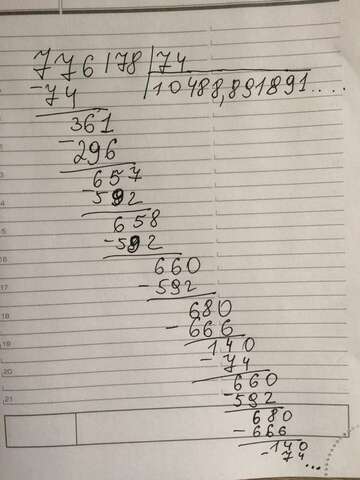 776178 74
-74 10488,891891....
361
-296
657
-592
658
-592
660
-592
680
-666
140
-74
660
-592
680
-666
140
-74...